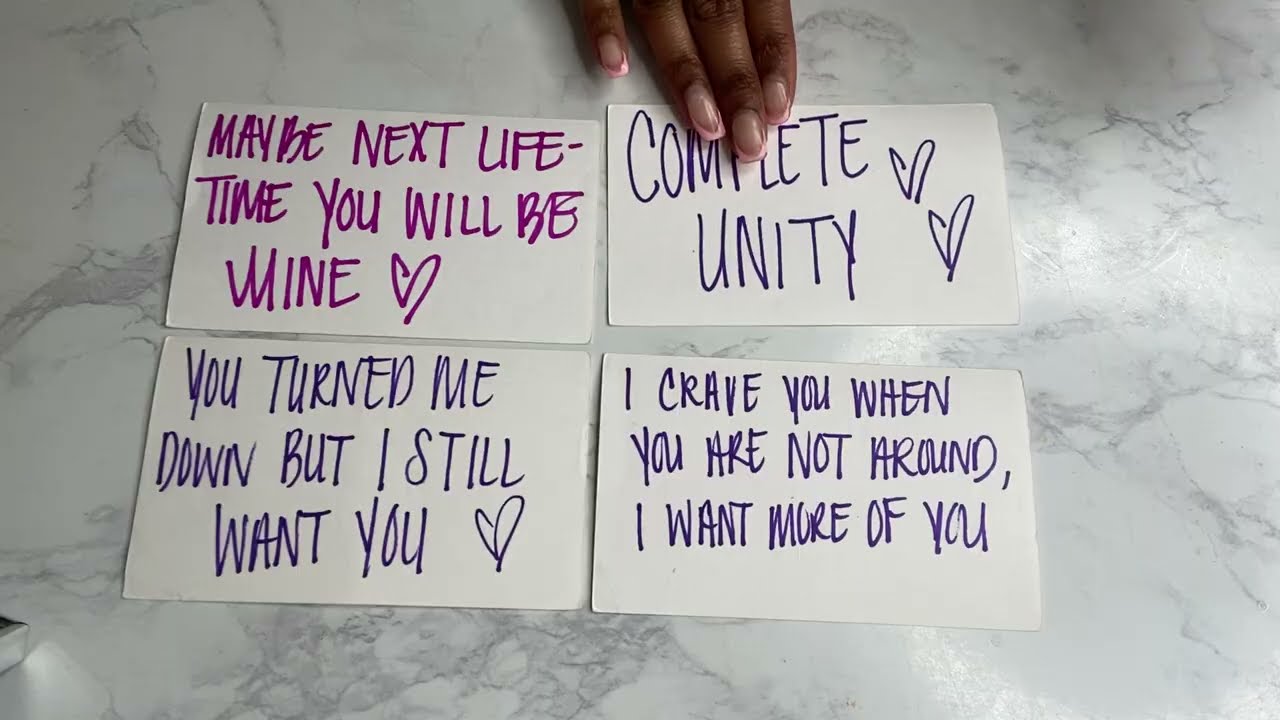 MAYBE NEXT LIFE-
TIME YOU WILL BE
MINE
COMPLETE
UNITY
YOU TURNED ME
DOWN BUT I STILL
WANT YOU
I CRAVE YOU WHEN
YOU ARE NOT AROUND,
I WANT MORE OF YOU